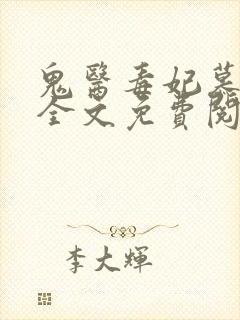 鬼醫毒妃慕
全文免費閱
李大輝